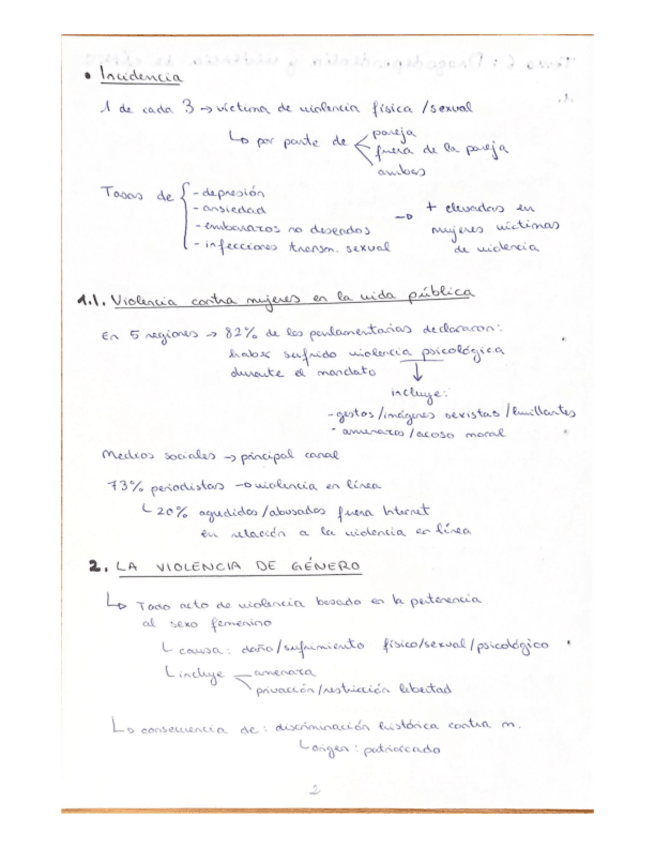 • Incidencia
1 de cada 3 → víctima de violencia física / sexual
↳ por parte de
pareja
fuera de la pareja
ambas
Tasas de { - depresión
- ansiedad
- embarazos no deseados
- infecciones transm. sexual
→ + elevadas en
mujeres víctimas
de violencia
1.1. Violencia contra mujeres en la vida pública
En 5 regiones → 82% de las parlamentarias declararon:
haber sufrido violencia psicológica
durante el mandato
↓
incluye:
- gestos / imágenes sexistas / humillantes
- amenazas / acoso moral
Medios sociales → principal canal
73% periodistas → violencia en línea
↳ 20% agredidos / abusados fuera Internet
en relación a la violencia en línea
2. LA VIOLENCIA DE GÉNERO
↳ Todo acto de violencia basado en la pertenencia
al sexo femenino
↳ causa: daño / sufrimiento físico/sexual/psicológico
↳ incluye
amenaza
privacción / restricción libertad
↳ consecuencia de: discriminación histórica contra m.
↳ origen: patriarcado
2